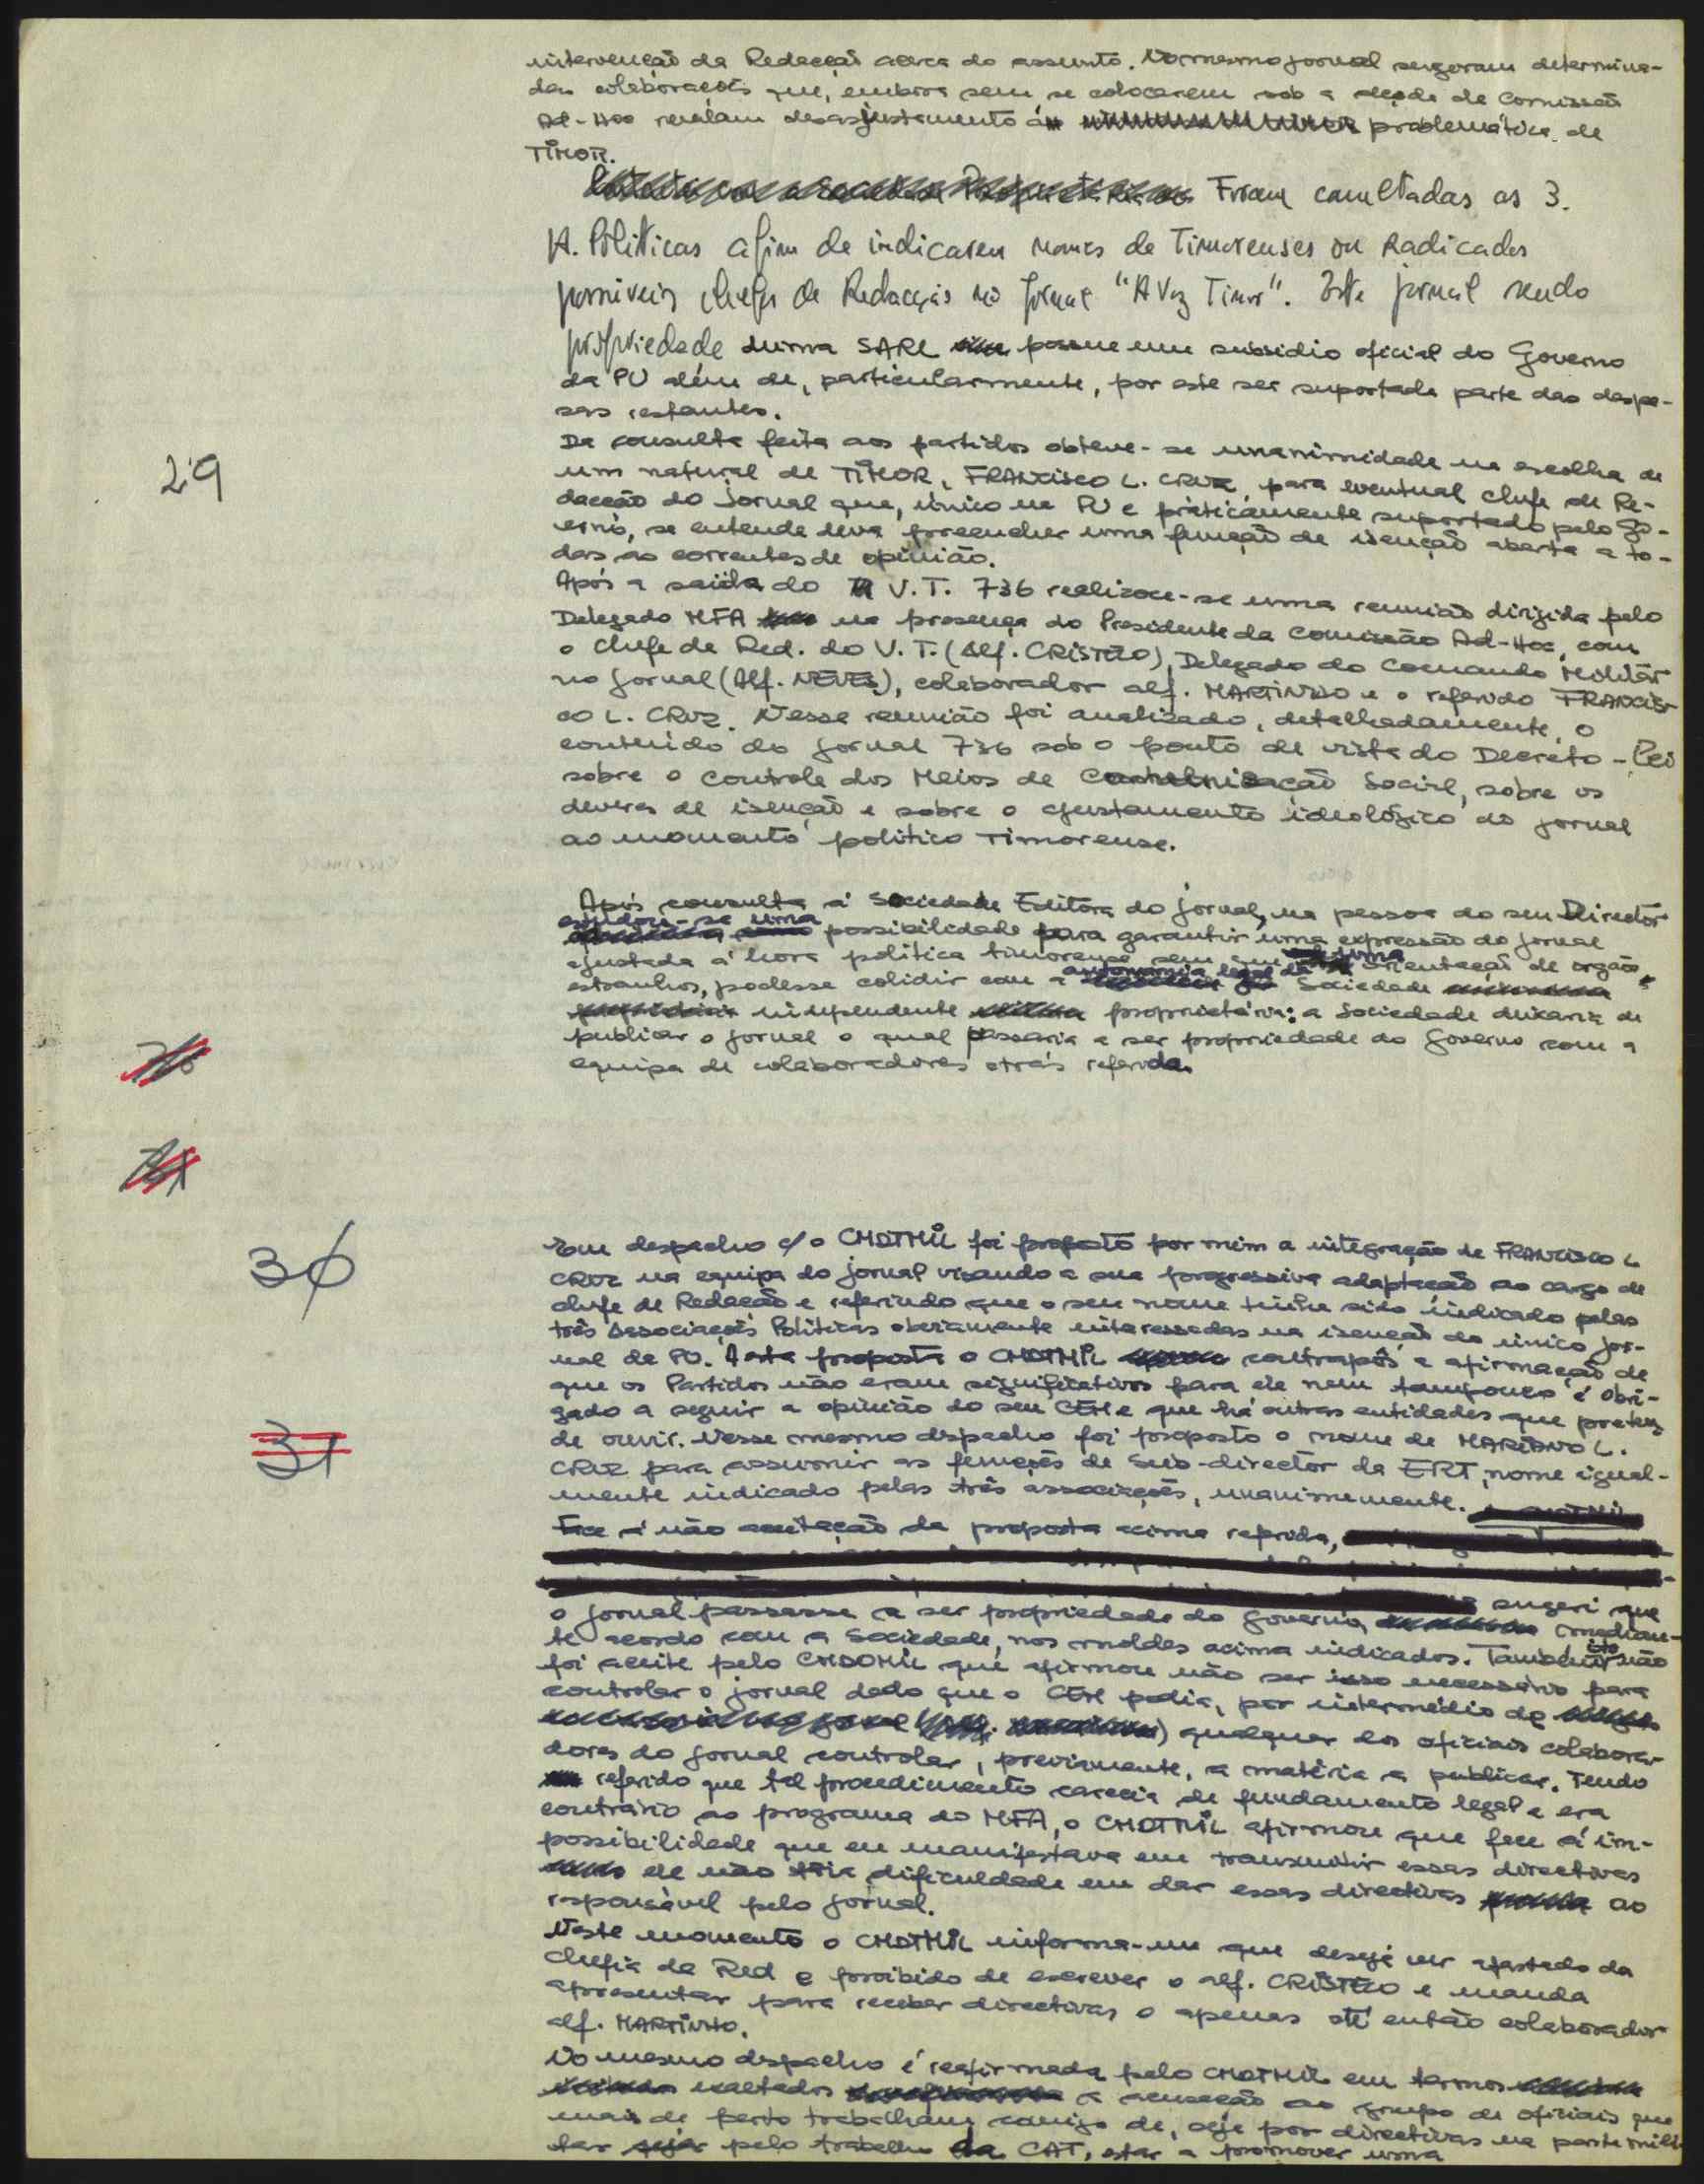 intervenção da Redacção acerca do assunto. No mesmo jornal surgiram determina-
das colaborações que, embora sem se colocarem sob a de Comissão
Ad-Hoc revelam desajustamento á problemática de
TIMOR.
Foram consultadas as 3.
A. Políticas afim de indicarem nomes de Timorenses ou Radicados
possíveis chefes de Redacção no jornal "A Voz Timor". Este jornal sendo
propriedade duma SARL possue um subsídio oficial do Governo
da PU além de, particularmente, por este ser suportada parte das despe-
sas restantes.
29
Da consulta feita aos partidos obteve-se unanimidade na escolha de
um natural de TIMOR, FRANCISCO L. CRUZ, para eventual chefe de Re-
dacção do Jornal que, único na PU e práticamente suportado pelo Go-
verno, se entende deva preencher uma função de isenção aberta a to-
das as correntes de opinião.
Após a saída do V.T. 736 realizou-se uma reunião dirigida pelo
Delegado MFA na presença do Presidente da Comissão Ad-Hoc, com
o Chefe de Red. do V.T. (Alf. CRISTELO), Delegado do Comando Militar
no Jornal (Alf. NEVES), colaborador alf. MARTINHO e o referido FRANCIS-
CO L. CRUZ. Nessa reunião foi analizado, detalhadamente, o
conteúdo do jornal 736 sob o ponto de vista do Decreto-Lei
sobre o controle dos Meios de Comunicação Social, sobre os
deveres de isenção e sobre o ajustamento ideológico do jornal
ao momento político Timorense.
Após consulta á Sociedade Editora do jornal, na pessoa do seu Director
estudou-se uma possibilidade para garantir uma expressão do jornal
ajustada á hora política timorense sem que uma orientação de orgãos
estranhos, podesse colidir com a autonomia legal da Sociedade
independente proprietária: a Sociedade deixaria de
publicar o jornal o qual passaria a ser propriedade do Governo com a
equipa de colaboradores atrás referida.
30
Em despacho c/ o CMDTMIL foi proposto por mim a integração de FRANCISCO L
CRUZ na equipa do jornal visando a sua progressiva adaptação ao cargo de
chefe de Redacção e referindo que o seu nome tinha sido indicado pelas
três Associações Políticas obviamente interessadas na isenção do único jor-
nal da PU. A esta proposta o CMDTMIL contrapôs a afirmação de
que os Partidos não eram significativos para ele nem tampouco é obri-
gado a seguir a opinião do seu CEM e que há outras entidades que
de ouvir. Nesse mesmo despacho foi proposto o nome de MARIANO L.
31
CRUZ para assumir as funções de Sub-director da ERT, nome igual-
mente indicado pelas três associações, unanimemente.
Face á não aceitação da proposta acima referida,
sugeri que
o jornal passasse a ser propriedade do Governo, median-
te acordo com a Sociedade, nos moldes acima indicados. Também isto não
foi aceite pelo CMDOMIL que afirmou não ser isso necessário para
controlar o jornal dado que o CEM podia, por intermédio de
qualquer dos oficiais colabora-
dores do jornal controlar, previamente, a matéria a publicar. Tendo
referido que tal procedimento carecia de fundamento legal e era
contrário ao programa do MFA, o CMDTMIL afirmou que face á im-
possibilidade que eu manifestava em transmitir essas directivas
ele não teria dificuldade em dar essas directivas ao
responsável pelo jornal.
Neste momento o CMDTMIL informa-me que deseja ver afastado da
Chefia da Red e proibido de escrever o alf. CRISTELO e manda
apresentar para receber directivas o apenas até então colaborador
alf. MARTINHO.
No mesmo despacho é reafirmada pelo CMDTMIL em termos
exaltados a acusação ao grupo de oficiais que
mais de perto trabalham comigo de, seja por directivas na parte mili-
tar seja pelo trabalho da CAT, estar a promover uma